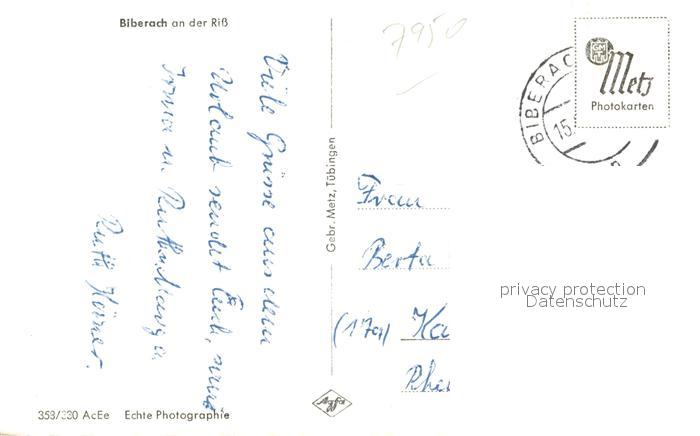 Biberach an der Riß
7950
BIBERAC
15.
GM
Metz
Photokarten
Viele Grüsse aus dem
Urlaub sendet Euch,
Irma u.
Ruth
Gebr. Metz, Tübingen
Frau
Berta
(17a) Ka
Rhei
privacy protection
Datenschutz
353/380 AcEe Echte Photographie
Agfa